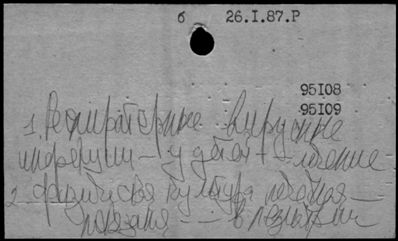 6 26.I.87.Р
95I08
95I09
1. Респираторные вирусные
инфекции – у детей – лечение
2. физическая культура лечебная –